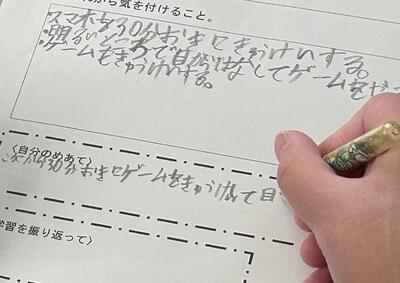 から気を付けること。
スマホを30分おきにきゅうけいする。
明るいところで目からはなしてゲームをや
ゲームをきゅうけいする。
〈自分のめあて〉
次から30分おきにゲームをきゅうけいして目
学習を振り返って〉